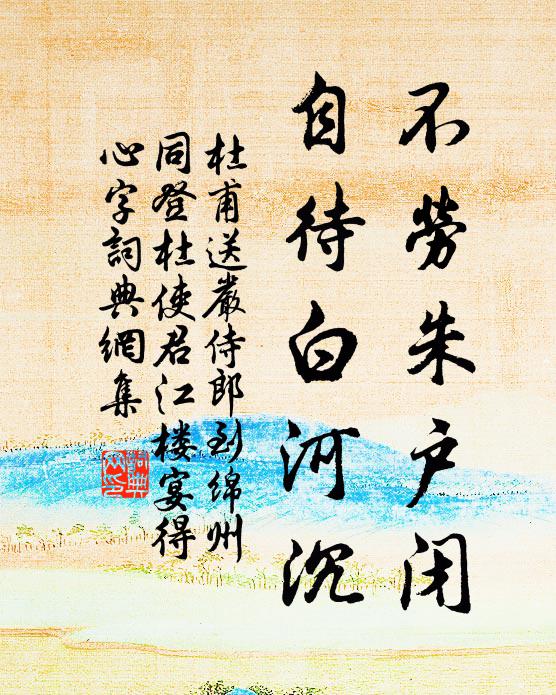 不勞朱户闭
自待白河沉
杜甫送嚴侍郎到绵州
同登杜使君江楼宴得
心字詞典網集